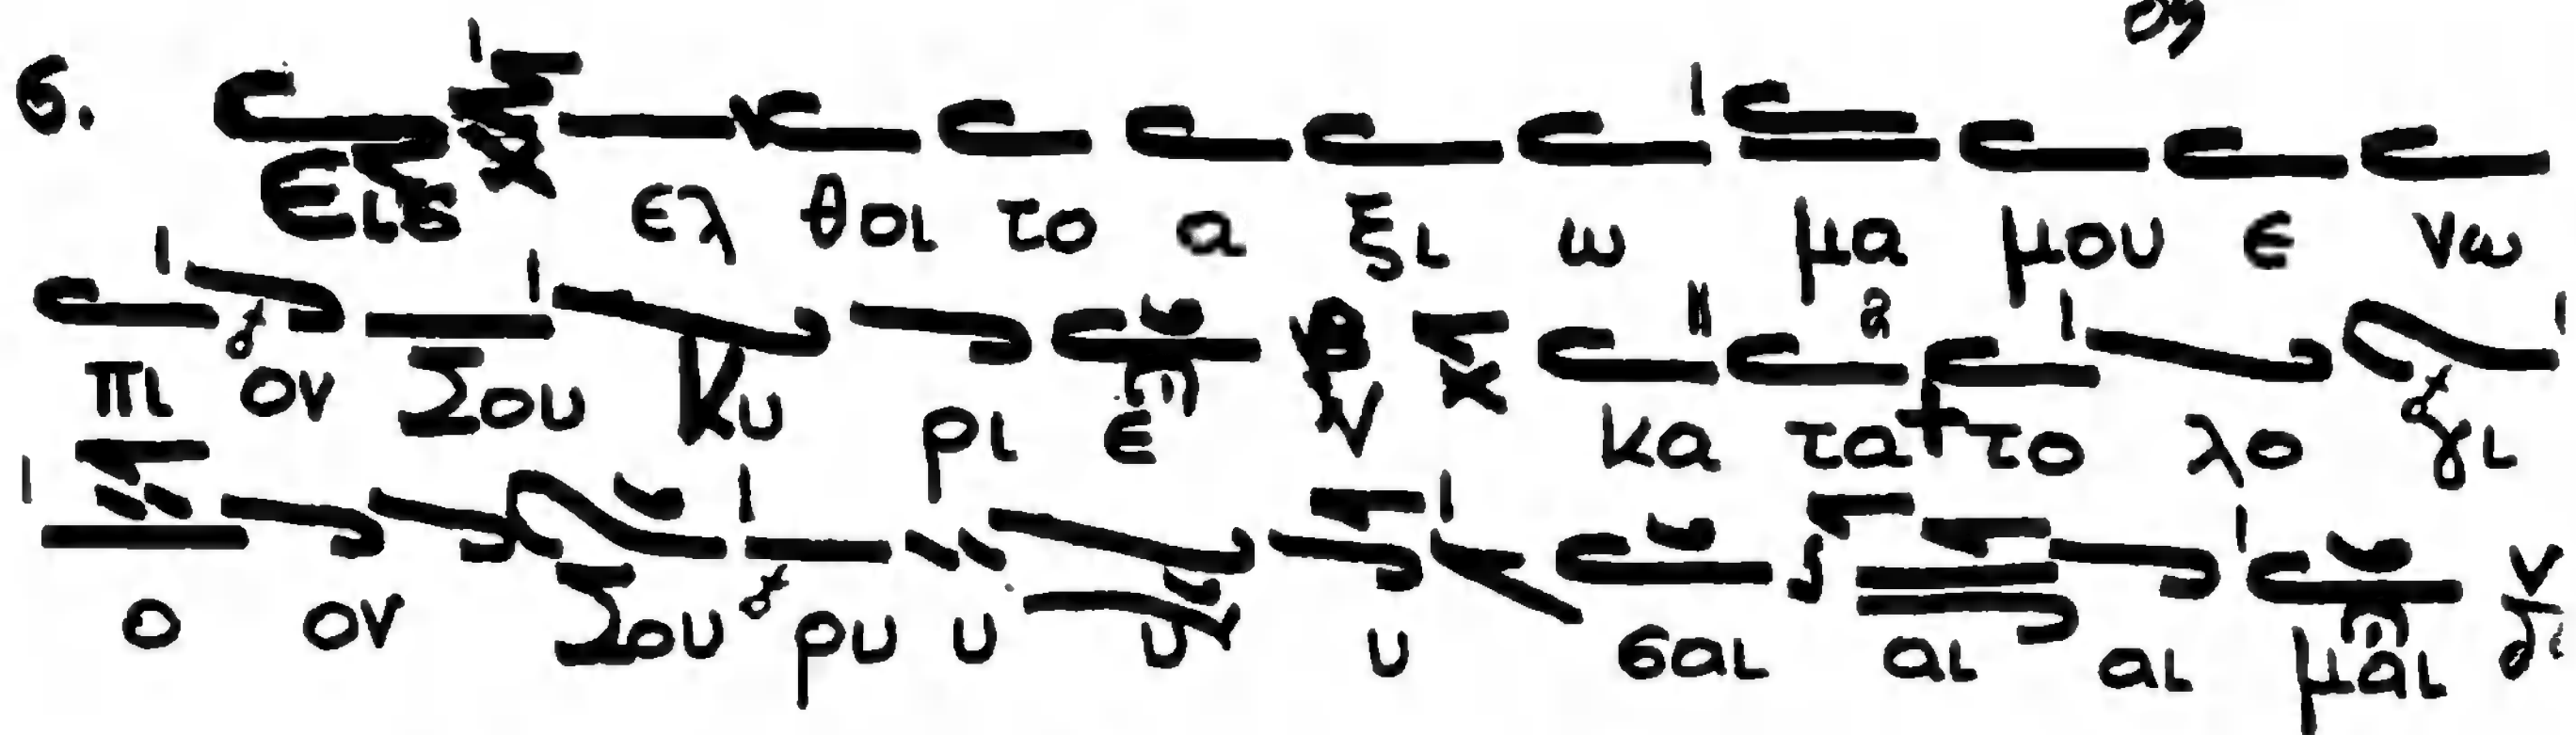 ον
6. Εις ελ θοι το α ξι ω μα μου ε νω
πι ον Σου Κυ ρι ε κα τα το λο γι
ο ον Σου ρυ υ υ υ σαι αι αι μαι